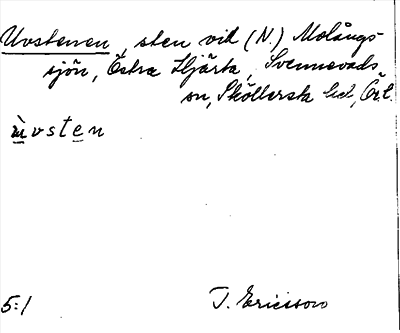 Uvstenen, sten vid (N.) Molångs-
sjön, Östra Hjärta, Svennevads
sn, Sköllersta hd,
ùvsten
5:1 T. Ericsson